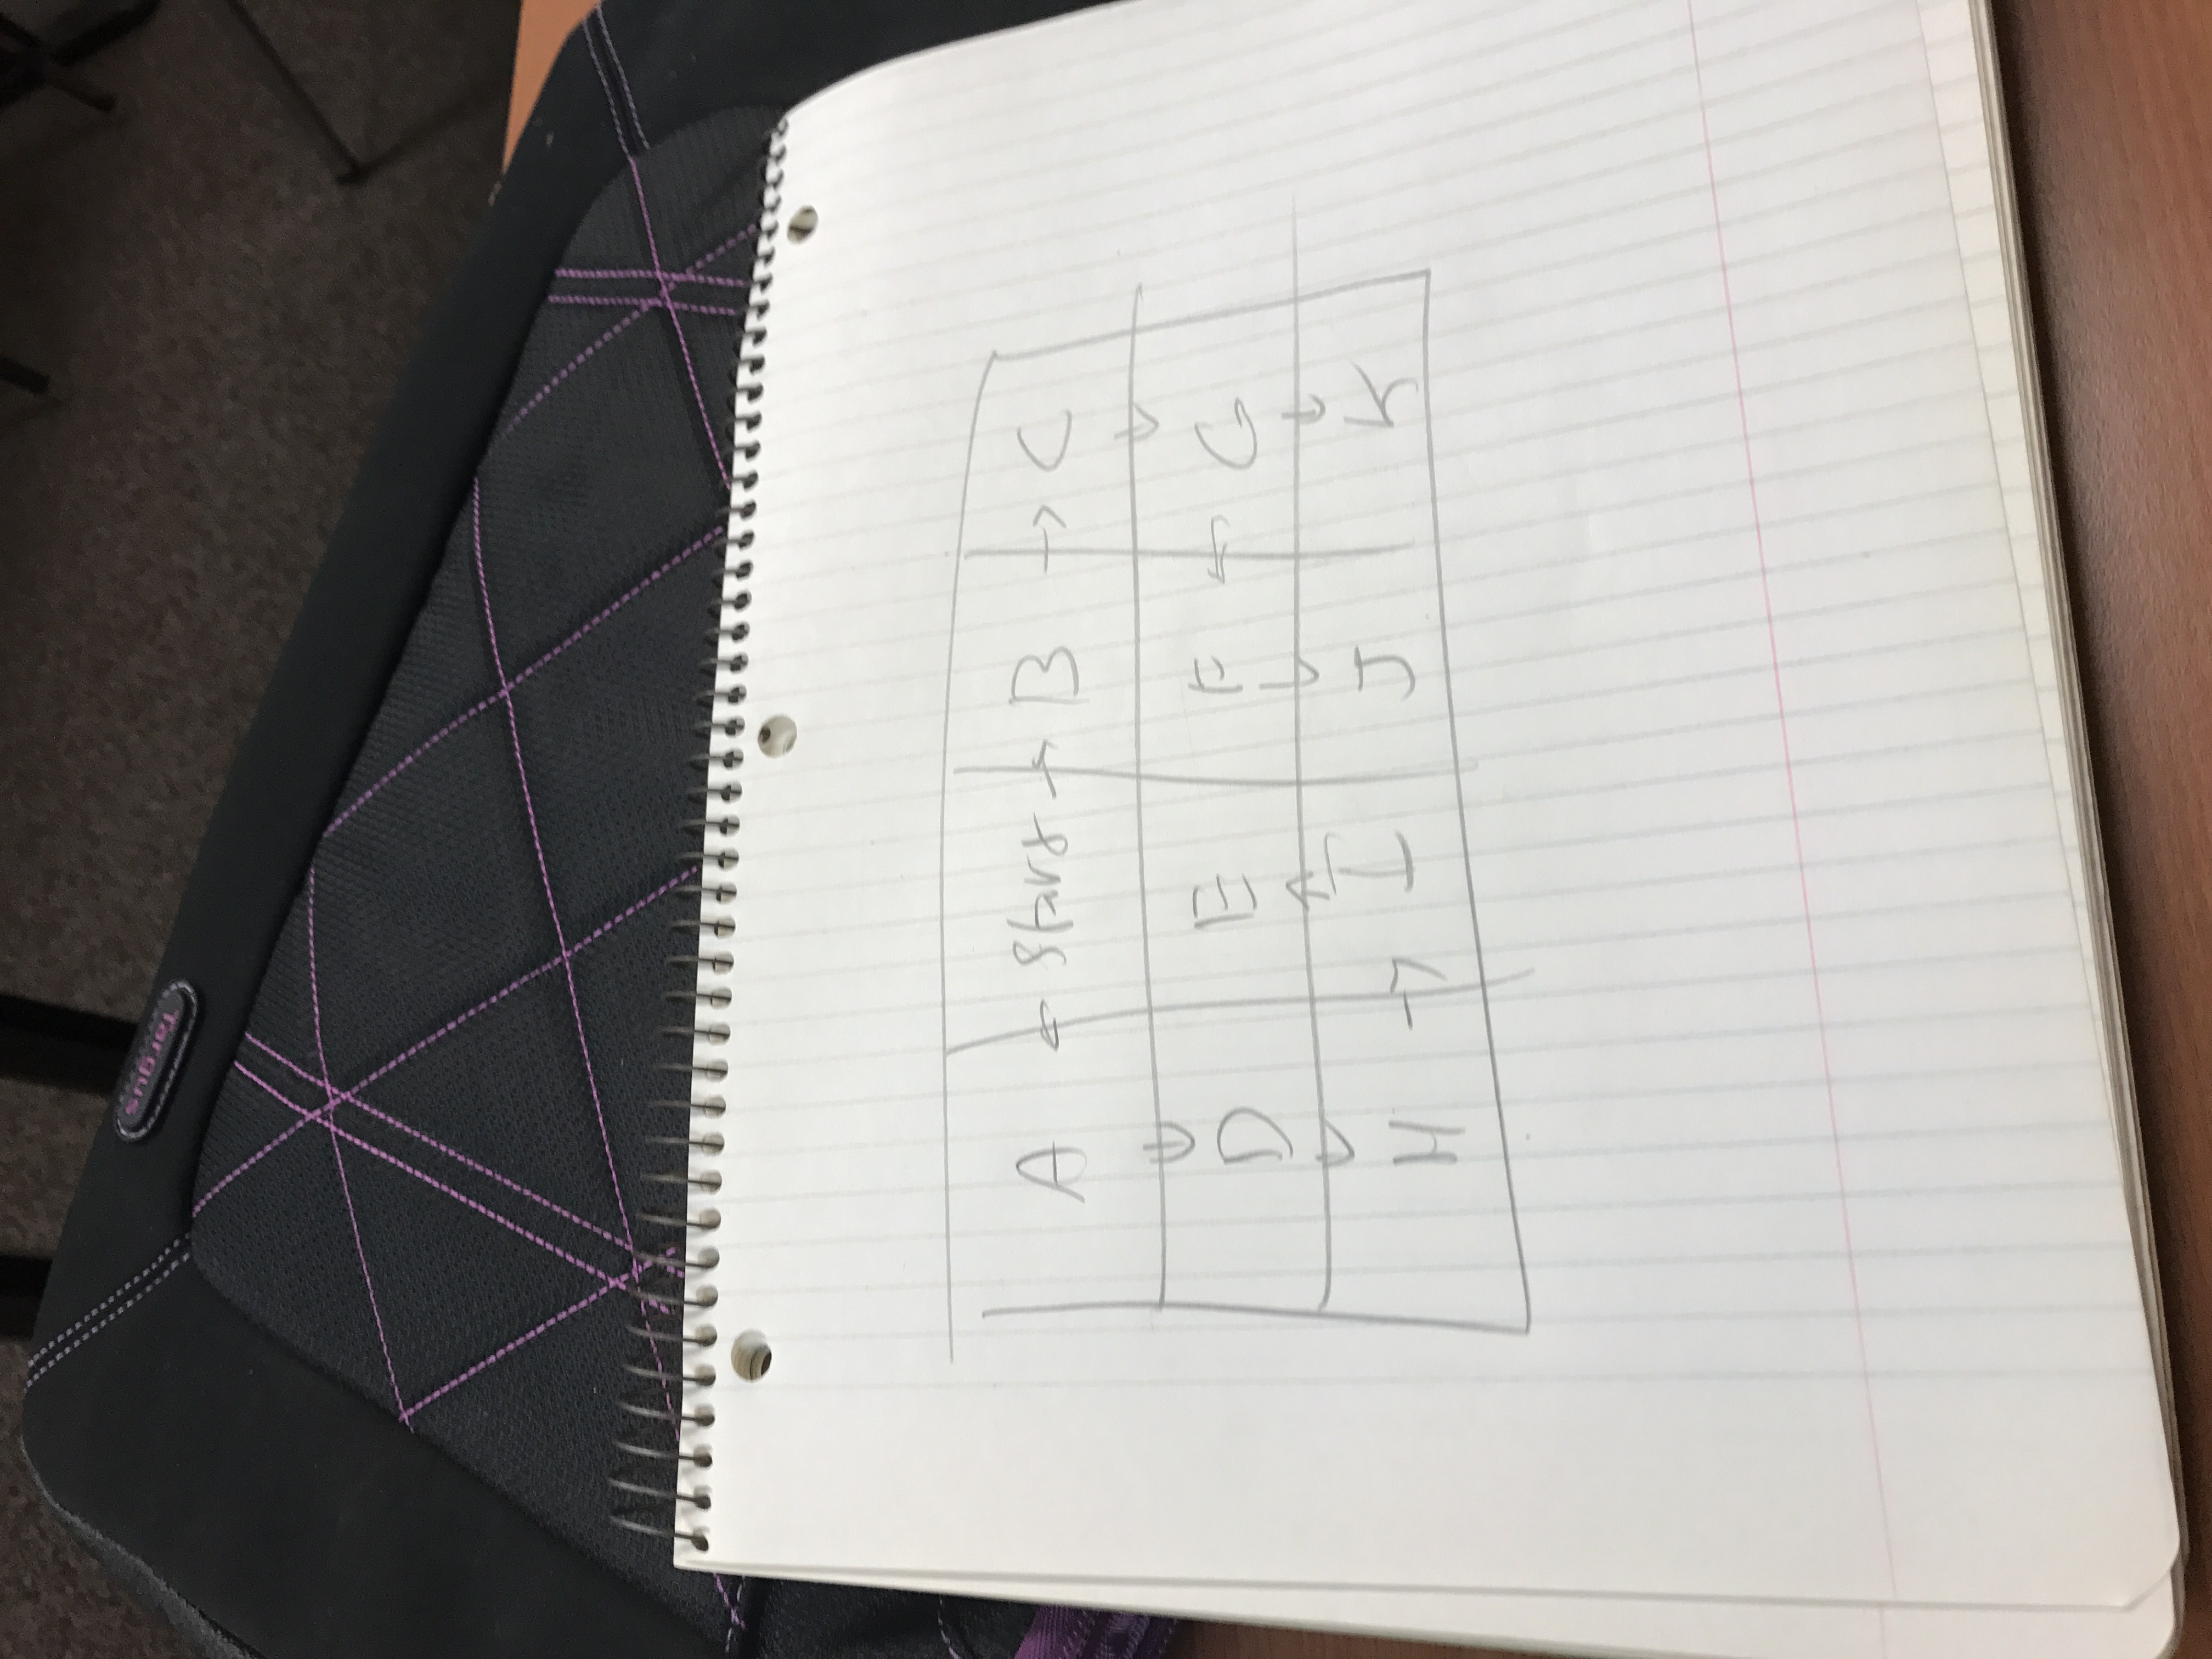 Targus
A ← Start → B → C
↓ ↓
D E F ← G
↓ ↑ ↓ ↓
H → I J K